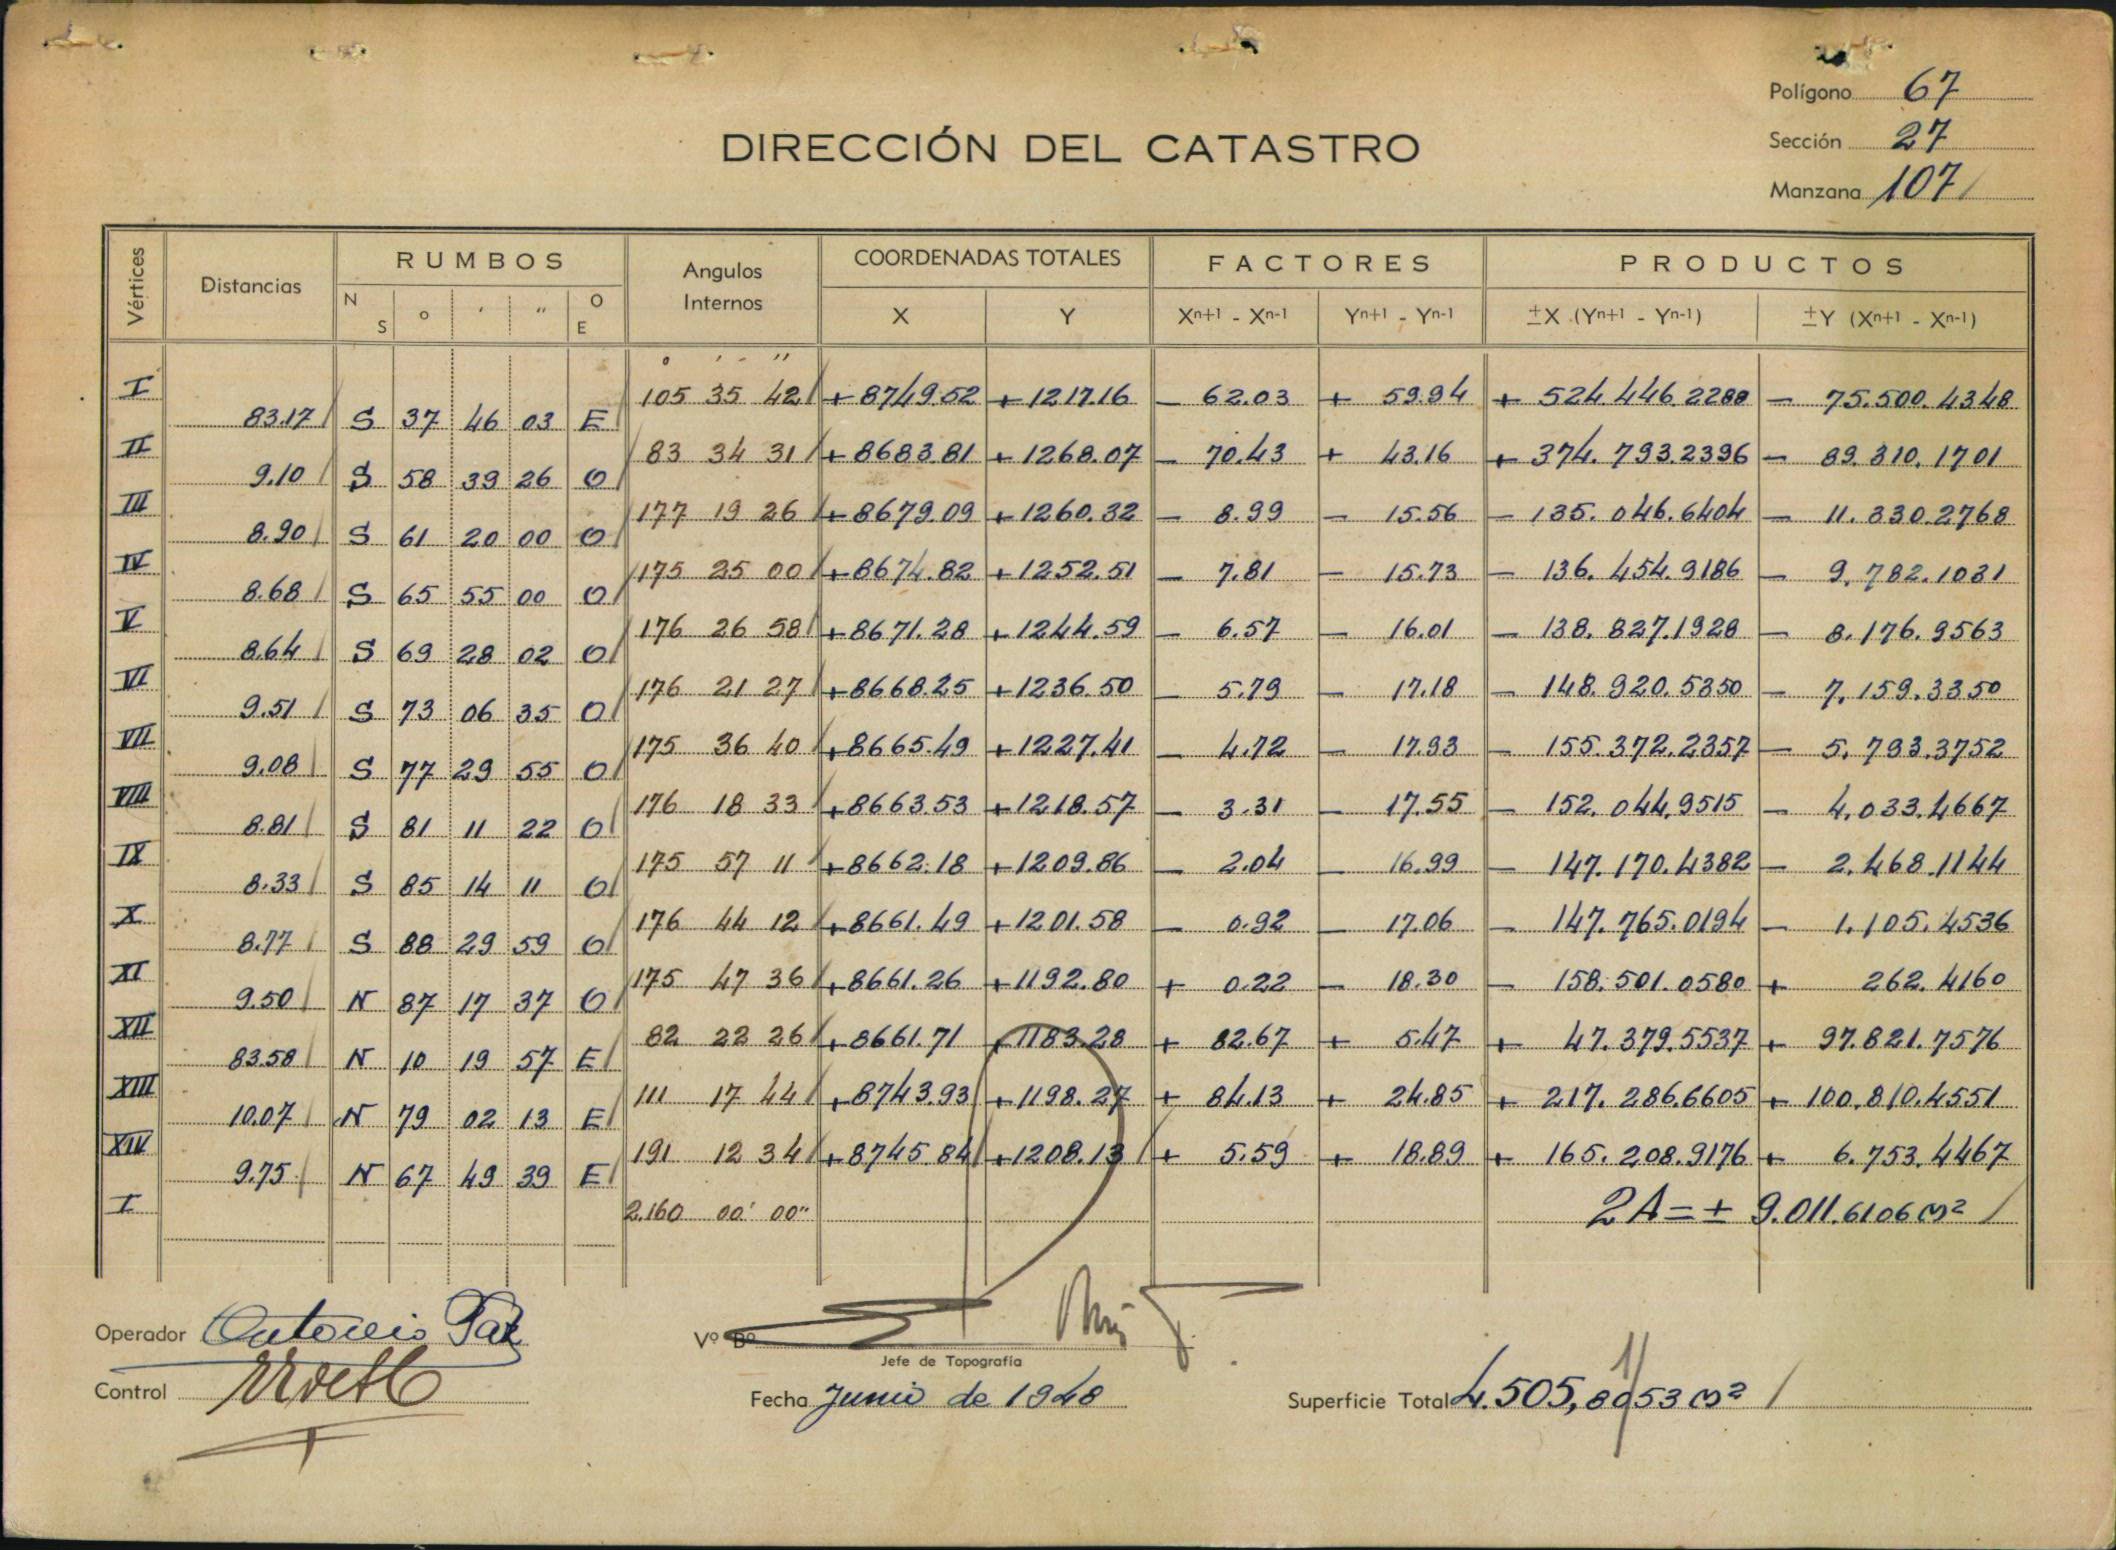 Polígono 67
DIRECCIÓN DEL CATASTRO
Sección 27
Manzana 107
Vértices Distancias RUMBOS Angulos Internos COORDENADAS TOTALES FACTORES PRODUCTOS
N S ° ' " O E X Y Xn+1 - Xn-1 Yn+1 - Yn-1 ±X (Yn+1 - Yn-1) ±Y (Xn+1 - Xn-1)
° ' "
I 105 35 42 +8749.52 +1217.16 - 62.03 + 59.94 + 524.446.2288 - 75.500.4348
83.17 S 37 46 03 E
II 83 34 31 +8683.81 +1268.07 - 70.43 + 43.16 + 374.793.2396 - 89.310.1701
9.10 S 58 39 26 O
III 177 19 26 +8679.09 +1260.32 - 8.99 - 15.56 - 135.046.6404 - 11.330.2768
8.90 S 61 20 00 O
IV 175 25 00 +8674.82 +1252.51 - 7.81 - 15.73 - 136.454.9186 - 9.782.1031
8.68 S 65 55 00 O
V 176 26 58 +8671.28 +1244.59 - 6.57 - 16.01 - 138.827.1928 - 8.176.9563
8.64 S 69 28 02 O
VI 176 21 27 +8668.25 +1236.50 - 5.79 - 17.18 - 148.920.5350 - 7.159.3350
9.51 S 73 06 35 O
VII 175 36 40 +8665.49 +1227.41 - 4.72 - 17.93 - 155.372.2357 - 5.793.3752
9.08 S 77 29 55 O
VIII 176 18 33 +8663.53 +1218.57 - 3.31 - 17.55 - 152.044.9515 - 4.033.4667
8.81 S 81 11 22 O
IX 175 57 11 +8662.18 +1209.86 - 2.04 - 16.99 - 147.170.4382 - 2.468.1144
8.33 S 85 14 11 O
X 176 44 12 +8661.49 +1201.58 - 0.92 - 17.06 - 147.765.0194 - 1.105.4536
8.77 S 88 29 59 O
XI 175 47 36 +8661.26 +1192.80 + 0.22 - 18.30 - 158.501.0580 + 262.4160
9.50 N 87 17 37 O
XII 82 22 26 +8661.71 +1183.28 + 82.67 + 5.47 + 47.379.5537 + 97.821.7576
83.58 N 10 19 57 E
XIII 111 17 44 +8743.93 +1198.27 + 84.13 + 24.85 + 217.286.6605 + 100.810.4551
10.07 N 79 02 13 E
XIV 191 12 34 +8745.84 +1208.13 + 5.59 + 18.89 + 165.208.9176 + 6.753.4467
9.75 N 67 49 39 E
I 2.160 00' 00" 2A = ± 9.011.6106 m²
Operador Antonio Paz
Vº Bº
Jefe de Topografía
Control
Fecha Junio de 1948
Superficie Total 4.505,8053 m²